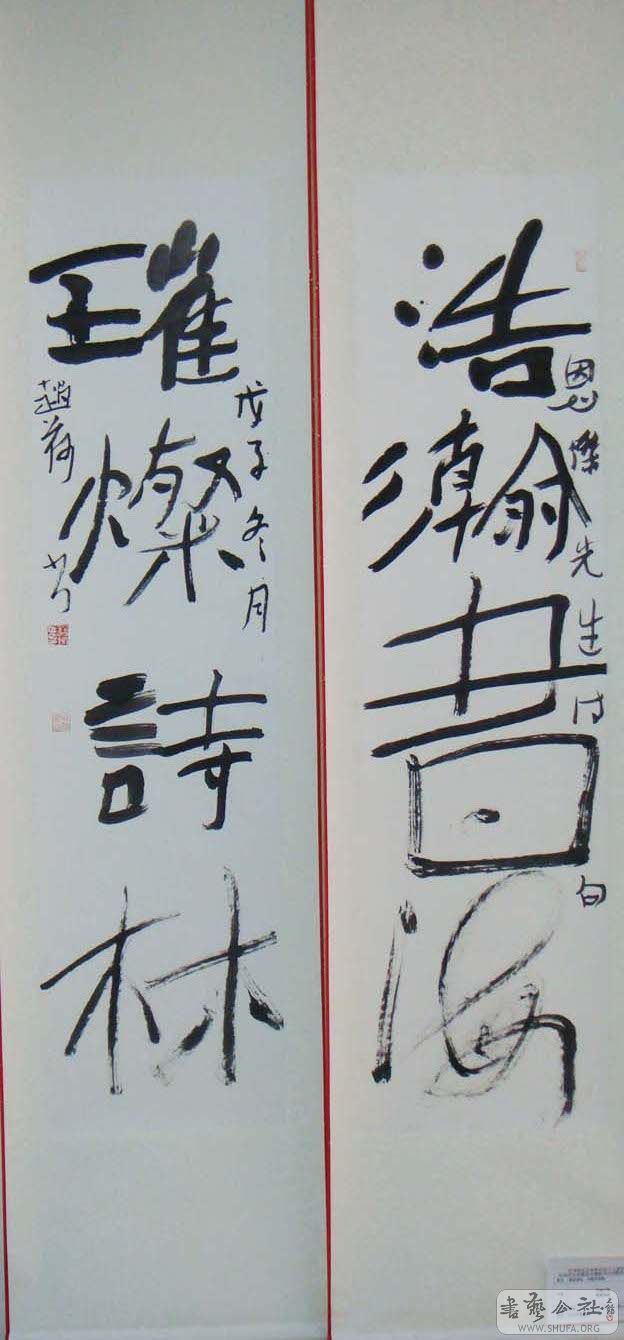 浩瀚書海
恩傑先生句
璀燦詩林
戊子冬月
趙芳
書藝公社
WWW.SHUFA.ORG